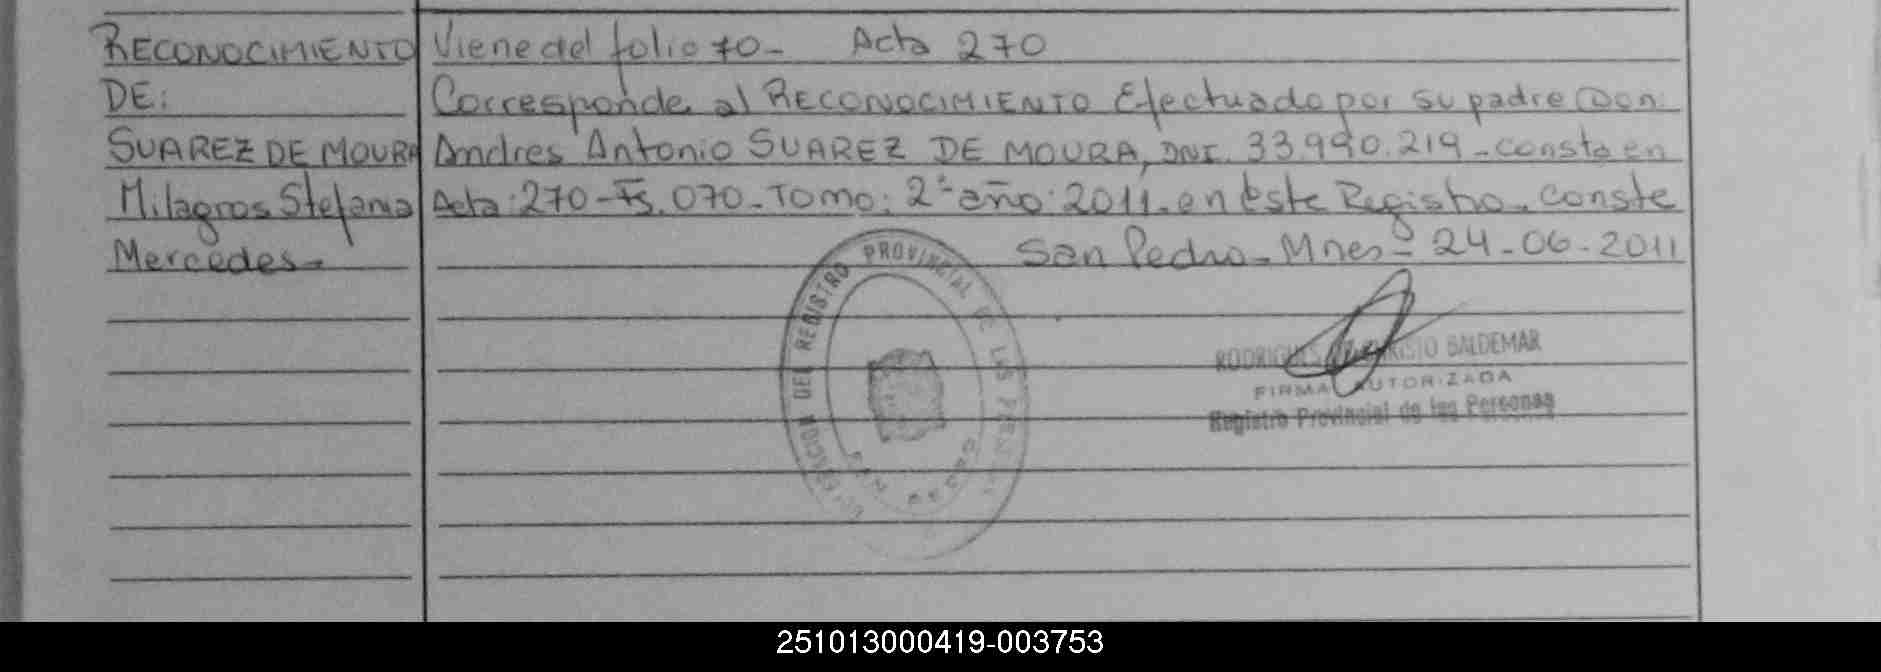 RECONOCIMIENTO
DE:
SUAREZ DE MOURA
Milagros Stefania
Mercedes.
Viene del folio 70- Acta 270
Corresponde al RECONOCIMIENTO Efectuado por su padre Don:
Andres Antonio SUAREZ DE MOURA, DNI. 33.990.219-consta en
Acta: 270-Fs. 070-Tomo: 2º año: 2011-en este Registro. Conste
San Pedro-Mnes- 24-06-2011
DEL REGISTRO PROVINCIAL DE LAS
BALDEMAR
FIRMA AUTORIZADA
Registro Provincial de las Personas
251013000419-003753